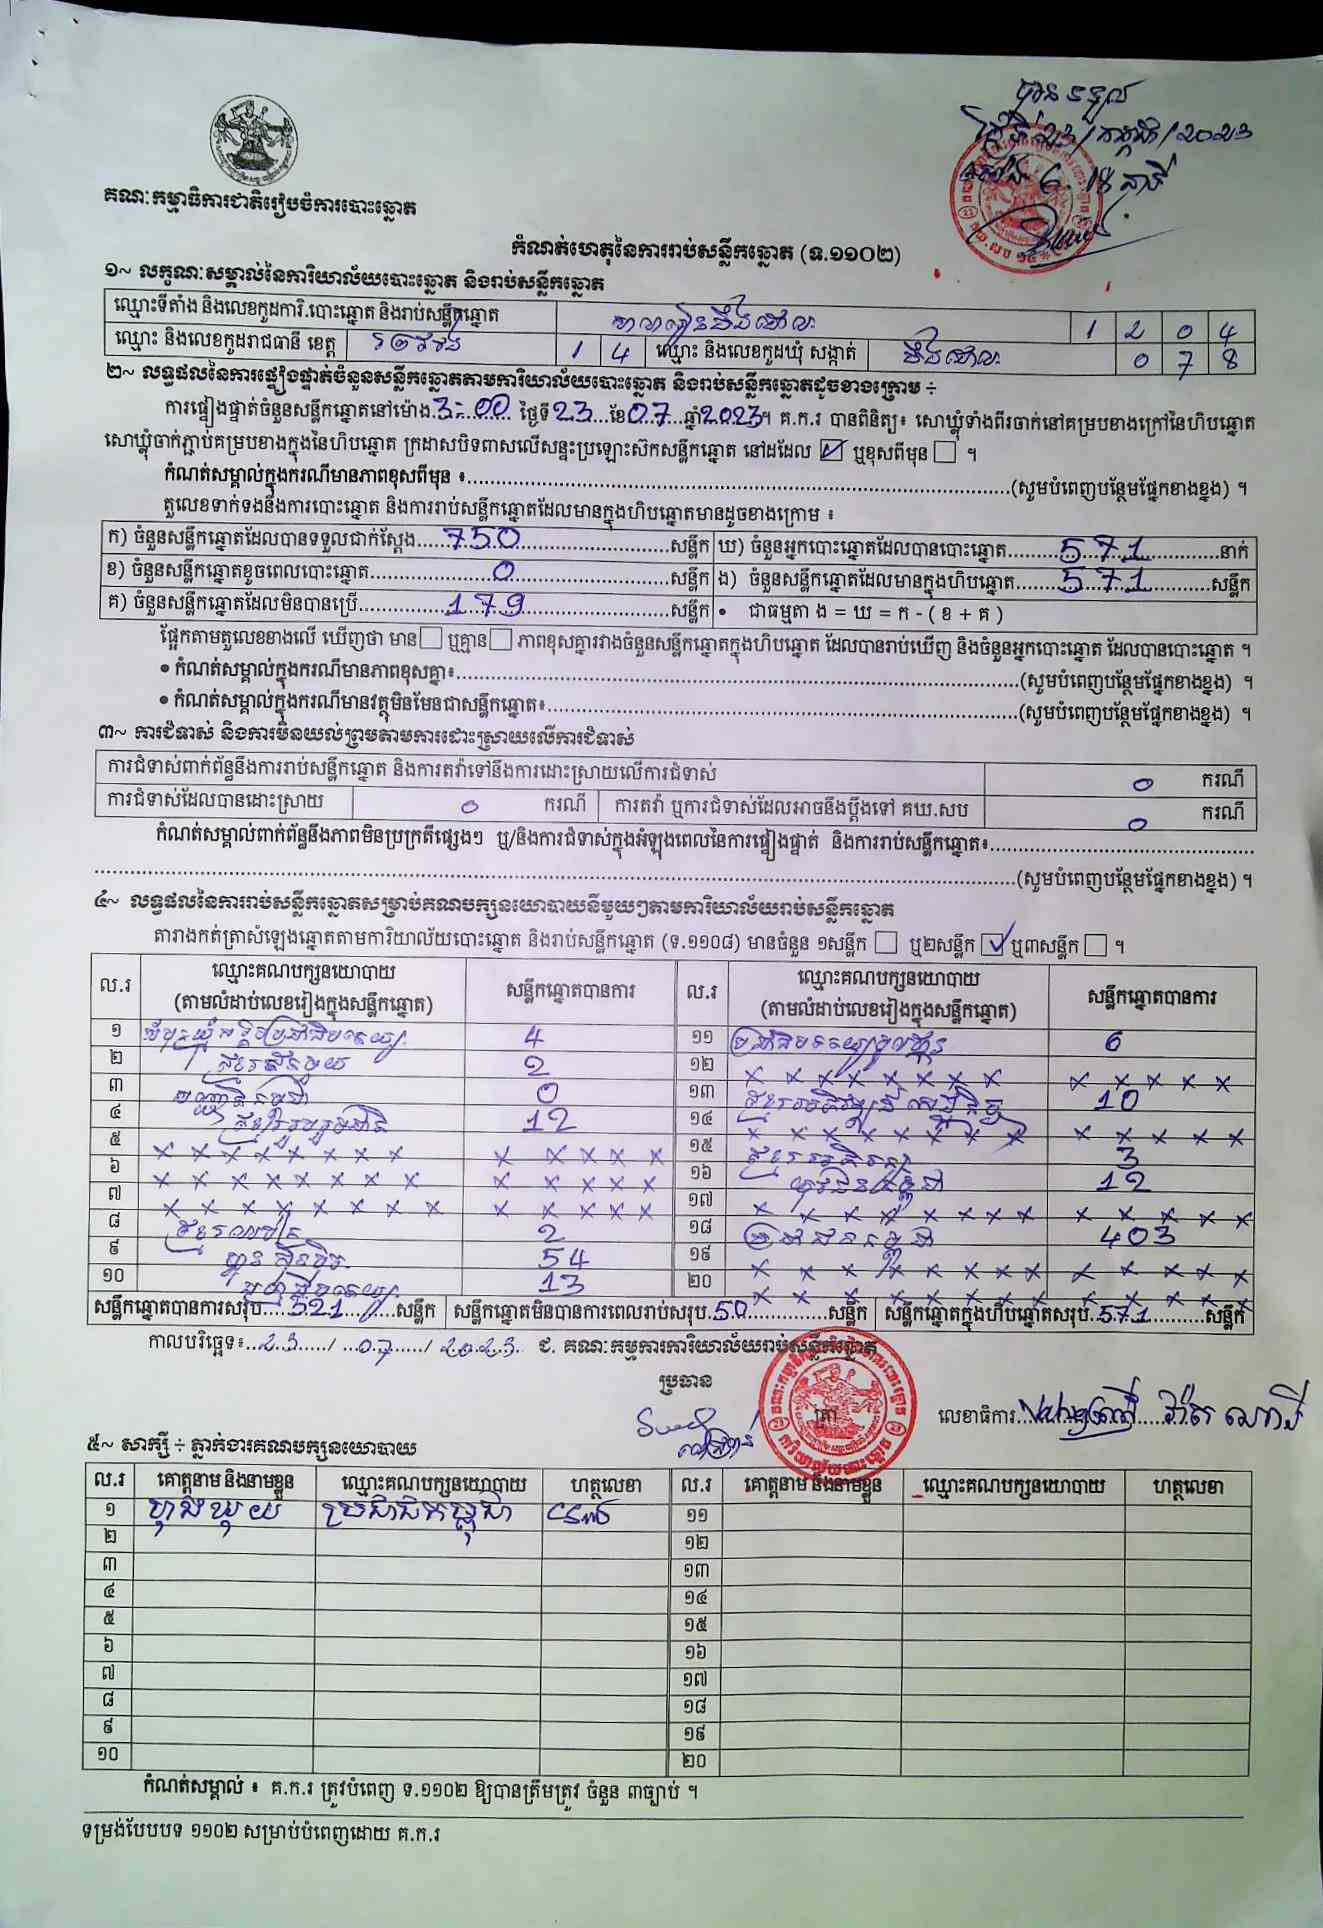 បានទទួល
ថ្ងៃទី២៣/កក្កដា/2023
ម៉ោង 6:18 នាទី
គណៈកម្មាធិការជាតិរៀបចំការបោះឆ្នោត
កំណត់ហេតុនៃការរាប់សន្លឹកឆ្នោត (ទ.១១០២)
១~ លក្ខណៈសម្គាល់នៃការិយាល័យបោះឆ្នោត និងរាប់សន្លឹកឆ្នោត
ឈ្មោះទីតាំង និងលេខកូដការិ.បោះឆ្នោត និងរាប់សន្លឹកឆ្នោត 1 2 0 4
ឈ្មោះ និងលេខកូដរាជធានី ខេត្ត ព្រៃវែង 1 4 ឈ្មោះ និងលេខកូដឃុំ សង្កាត់ 0 7 8
២~ លទ្ធផលនៃការផ្ទៀងផ្ទាត់ចំនួនសន្លឹកឆ្នោតតាមការិយាល័យបោះឆ្នោត និងរាប់សន្លឹកឆ្នោតដូចខាងក្រោម ÷
ការផ្ទៀងផ្ទាត់ចំនួនសន្លឹកឆ្នោតនៅម៉ោង 3:00 ថ្ងៃទី 23 ខែ 07 ឆ្នាំ 2023 ។ គ.ក.រ បានពិនិត្យ៖ សោឃ្លុំទាំងពីរចាក់នៅគម្របខាងក្រៅនៃហិបឆ្នោត
សោឃ្លុំចាក់ភ្ជាប់គម្របខាងក្នុងនៃហិបឆ្នោត ក្រដាសបិទពាសលើសន្ទះប្រឡោះស៊កសន្លឹកឆ្នោត នៅដដែល ☑ ឬខុសពីមុន ☐ ។
កំណត់សម្គាល់ក្នុងករណីមានភាពខុសពីមុន ៖..........(សូមបំពេញបន្ថែមផ្នែកខាងខ្នង) ។
តួលេខទាក់ទងនឹងការបោះឆ្នោត និងការរាប់សន្លឹកឆ្នោតដែលមានក្នុងហិបឆ្នោតមានដូចខាងក្រោម ៖
ក) ចំនួនសន្លឹកឆ្នោតដែលបានទទួលជាក់ស្តែង 750 សន្លឹក ឃ) ចំនួនអ្នកបោះឆ្នោតដែលបានបោះឆ្នោត 571 នាក់
ខ) ចំនួនសន្លឹកឆ្នោតខូចពេលបោះឆ្នោត 0 សន្លឹក ង) ចំនួនសន្លឹកឆ្នោតដែលមានក្នុងហិបឆ្នោត 571 សន្លឹក
គ) ចំនួនសន្លឹកឆ្នោតដែលមិនបានប្រើ 179 សន្លឹក • ជាធម្មតា ង = ឃ = ក - ( ខ + គ )
ផ្អែកតាមតួលេខខាងលើ ឃើញថា មាន ☐ ឬគ្មាន ☐ ភាពខុសគ្នារវាងចំនួនសន្លឹកឆ្នោតក្នុងហិបឆ្នោត ដែលបានរាប់ឃើញ និងចំនួនអ្នកបោះឆ្នោត ដែលបានបោះឆ្នោត ។
• កំណត់សម្គាល់ក្នុងករណីមានភាពខុសគ្នា៖..........(សូមបំពេញបន្ថែមផ្នែកខាងខ្នង) ។
• កំណត់សម្គាល់ក្នុងករណីមានវត្ថុមិនមែនជាសន្លឹកឆ្នោត៖..........(សូមបំពេញបន្ថែមផ្នែកខាងខ្នង) ។
៣~ ការជំទាស់ និងការមិនយល់ព្រមតាមការដោះស្រាយលើការជំទាស់
ការជំទាស់ពាក់ព័ន្ធនឹងការរាប់សន្លឹកឆ្នោត និងការតវ៉ាទៅនឹងការដោះស្រាយលើការជំទាស់ 0 ករណី
ការជំទាស់ដែលបានដោះស្រាយ 0 ករណី ការតវ៉ា ឬការជំទាស់ដែលអាចនឹងប្តឹងទៅ គឃ.សប 0 ករណី
កំណត់សម្គាល់ពាក់ព័ន្ធនឹងភាពមិនប្រក្រតីផ្សេងៗ ឬ/និងការជំទាស់ក្នុងអំឡុងពេលនៃការផ្ទៀងផ្ទាត់ និងការរាប់សន្លឹកឆ្នោត៖..........
..........(សូមបំពេញបន្ថែមផ្នែកខាងខ្នង) ។
៤~ លទ្ធផលនៃការរាប់សន្លឹកឆ្នោតសម្រាប់គណបក្សនយោបាយនីមួយៗតាមការិយាល័យរាប់សន្លឹកឆ្នោត
តារាងកត់ត្រាសំឡេងឆ្នោតតាមការិយាល័យបោះឆ្នោត និងរាប់សន្លឹកឆ្នោត (ទ.១១០៨) មានចំនួន ១សន្លឹក ☐ ឬ២សន្លឹក ☑ ឬ៣សន្លឹក ☐ ។
ល.រ ឈ្មោះគណបក្សនយោបាយ (តាមលំដាប់លេខរៀងក្នុងសន្លឹកឆ្នោត) សន្លឹកឆ្នោតបានការ ល.រ ឈ្មោះគណបក្សនយោបាយ (តាមលំដាប់លេខរៀងក្នុងសន្លឹកឆ្នោត) សន្លឹកឆ្នោតបានការ
១ សំបុកឃ្មុំសង្គមប្រជាធិបតេយ្យ 4 ១១ 6
២ ខ្មែររួបរួម 2 ១២ x x x x x x x x x x x x x
៣ 0 ១៣ 10
៤ ខ្មែររួបរួមជាតិ 12 ១៤ x x x x x x x x x x x x x
៥ x x x x x x x x x x x x x ១៥ 3
៦ x x x x x x x x x x x x x ១៦ 12
៧ x x x x x x x x x x x x x ១៧ x x x x x x x x x x x x x
៨ 2 ១៨ ប្រជាជនកម្ពុជា 403
៩ ហ៊្វុនស៊ិនប៉ិច 54 ១៩ x x x x x x x x x x x x x
១០ 13 ២០ x x x x x x x x x x x x x
សន្លឹកឆ្នោតបានការសរុប 521 សន្លឹក សន្លឹកឆ្នោតមិនបានការពេលរាប់សរុប 50 សន្លឹក សន្លឹកឆ្នោតក្នុងហិបឆ្នោតសរុប 571 សន្លឹក
កាលបរិច្ឆេទ៖ 23 / 07 / 2023 ជ. គណៈកម្មការការិយាល័យរាប់សន្លឹកឆ្នោត
ប្រធាន
ត្រា
លេខាធិការ
៥~ សាក្សី ÷ ភ្នាក់ងារគណបក្សនយោបាយ
ល.រ គោត្តនាម និងនាមខ្លួន ឈ្មោះគណបក្សនយោបាយ ហត្ថលេខា ល.រ គោត្តនាម និងនាមខ្លួន ឈ្មោះគណបក្សនយោបាយ ហត្ថលេខា
១ ប្រជាជនកម្ពុជា ១១
២ ១២
៣ ១៣
៤ ១៤
៥ ១៥
៦ ១៦
៧ ១៧
៨ ១៨
៩ ១៩
១០ ២០
កំណត់សម្គាល់ ៖ គ.ក.រ ត្រូវបំពេញ ទ.១១០២ ឱ្យបានត្រឹមត្រូវ ចំនួន ៣ច្បាប់ ។
ទម្រង់បែបបទ ១១០២ សម្រាប់បំពេញដោយ គ.ក.រ